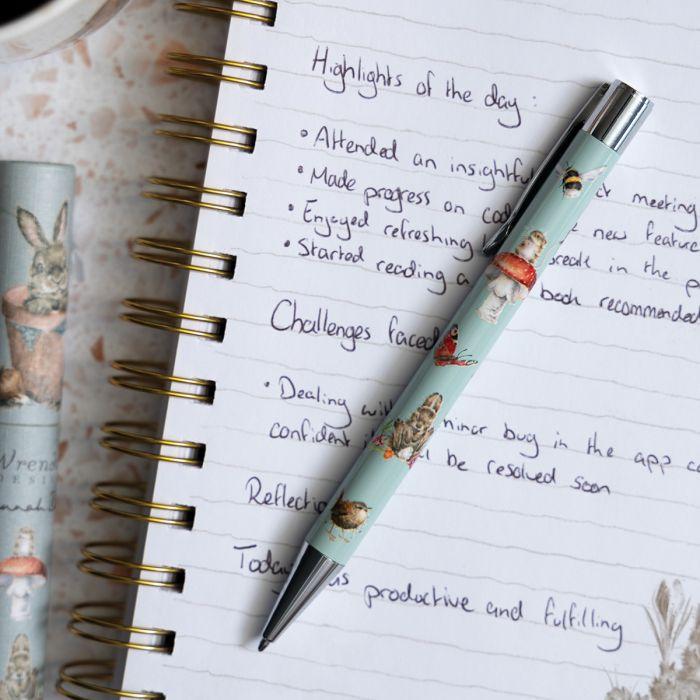 Highlights of the day:
• Attended an insightfu ck meeting
• Made progress on cod new featur
• Enjoyed refreshing break in the p
• Started reading a book recommended
Challenges faced
• Dealing wit minor bug in the app
confident be resolved soon
Reflectio
Today as productive and fulfilling
Wren
DESI